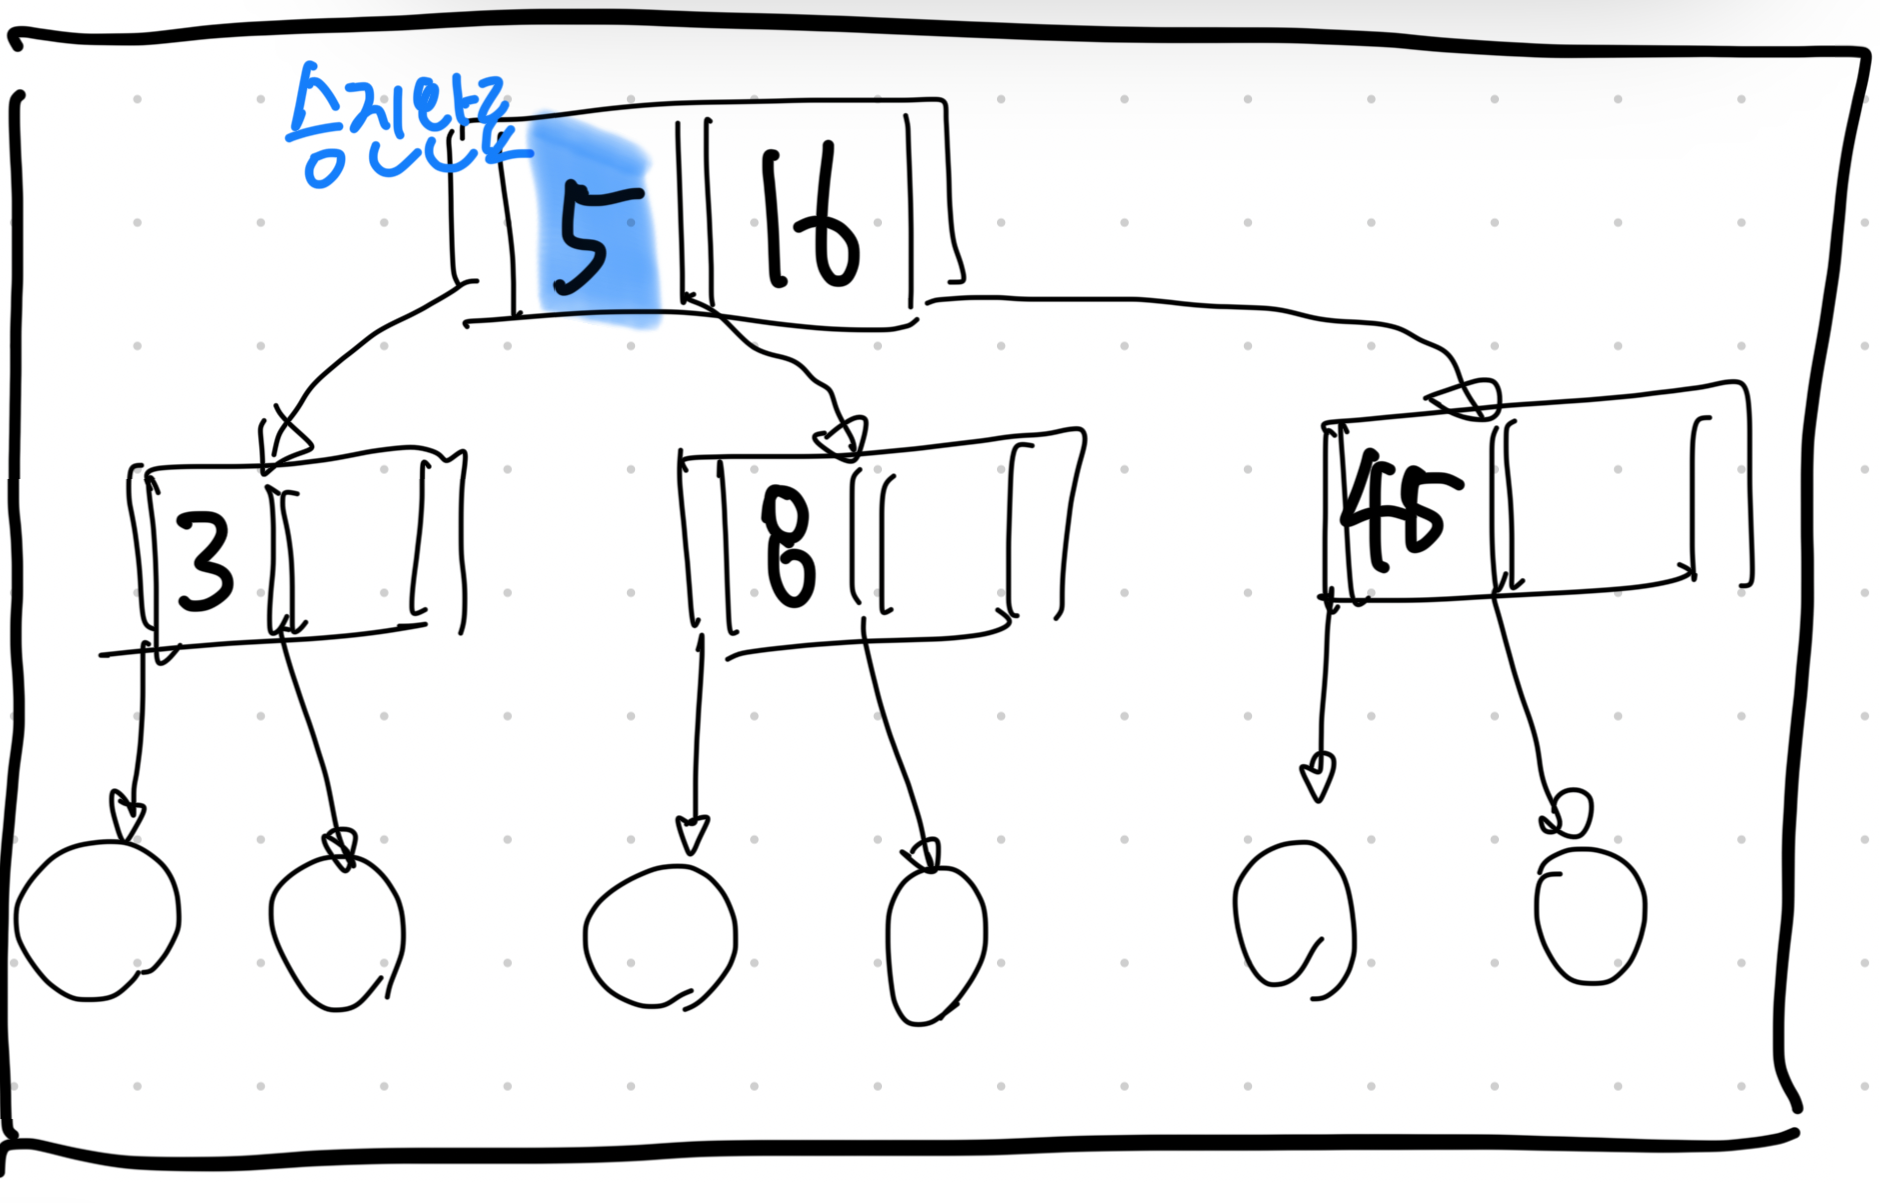 승진완료
5 16
3 8 45